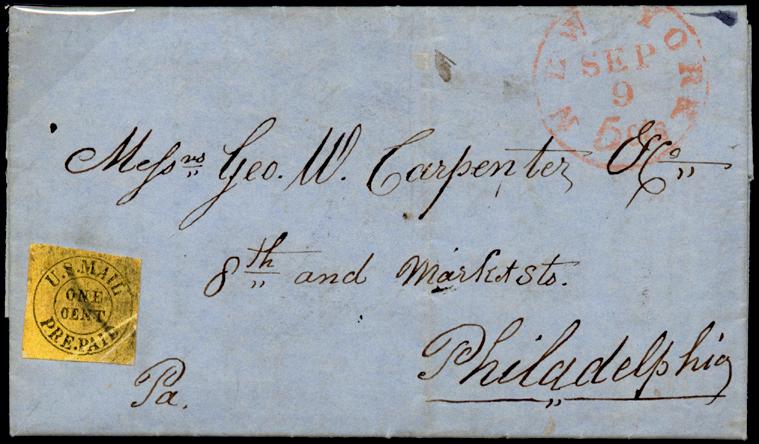 NEW YORK
SEP
9
5 cts
Messrs Geo. W. Carpenter & Co
8th and Market sts.
Philadelphia
Pa.
U.S. MAIL
ONE
CENT
PRE.PAID